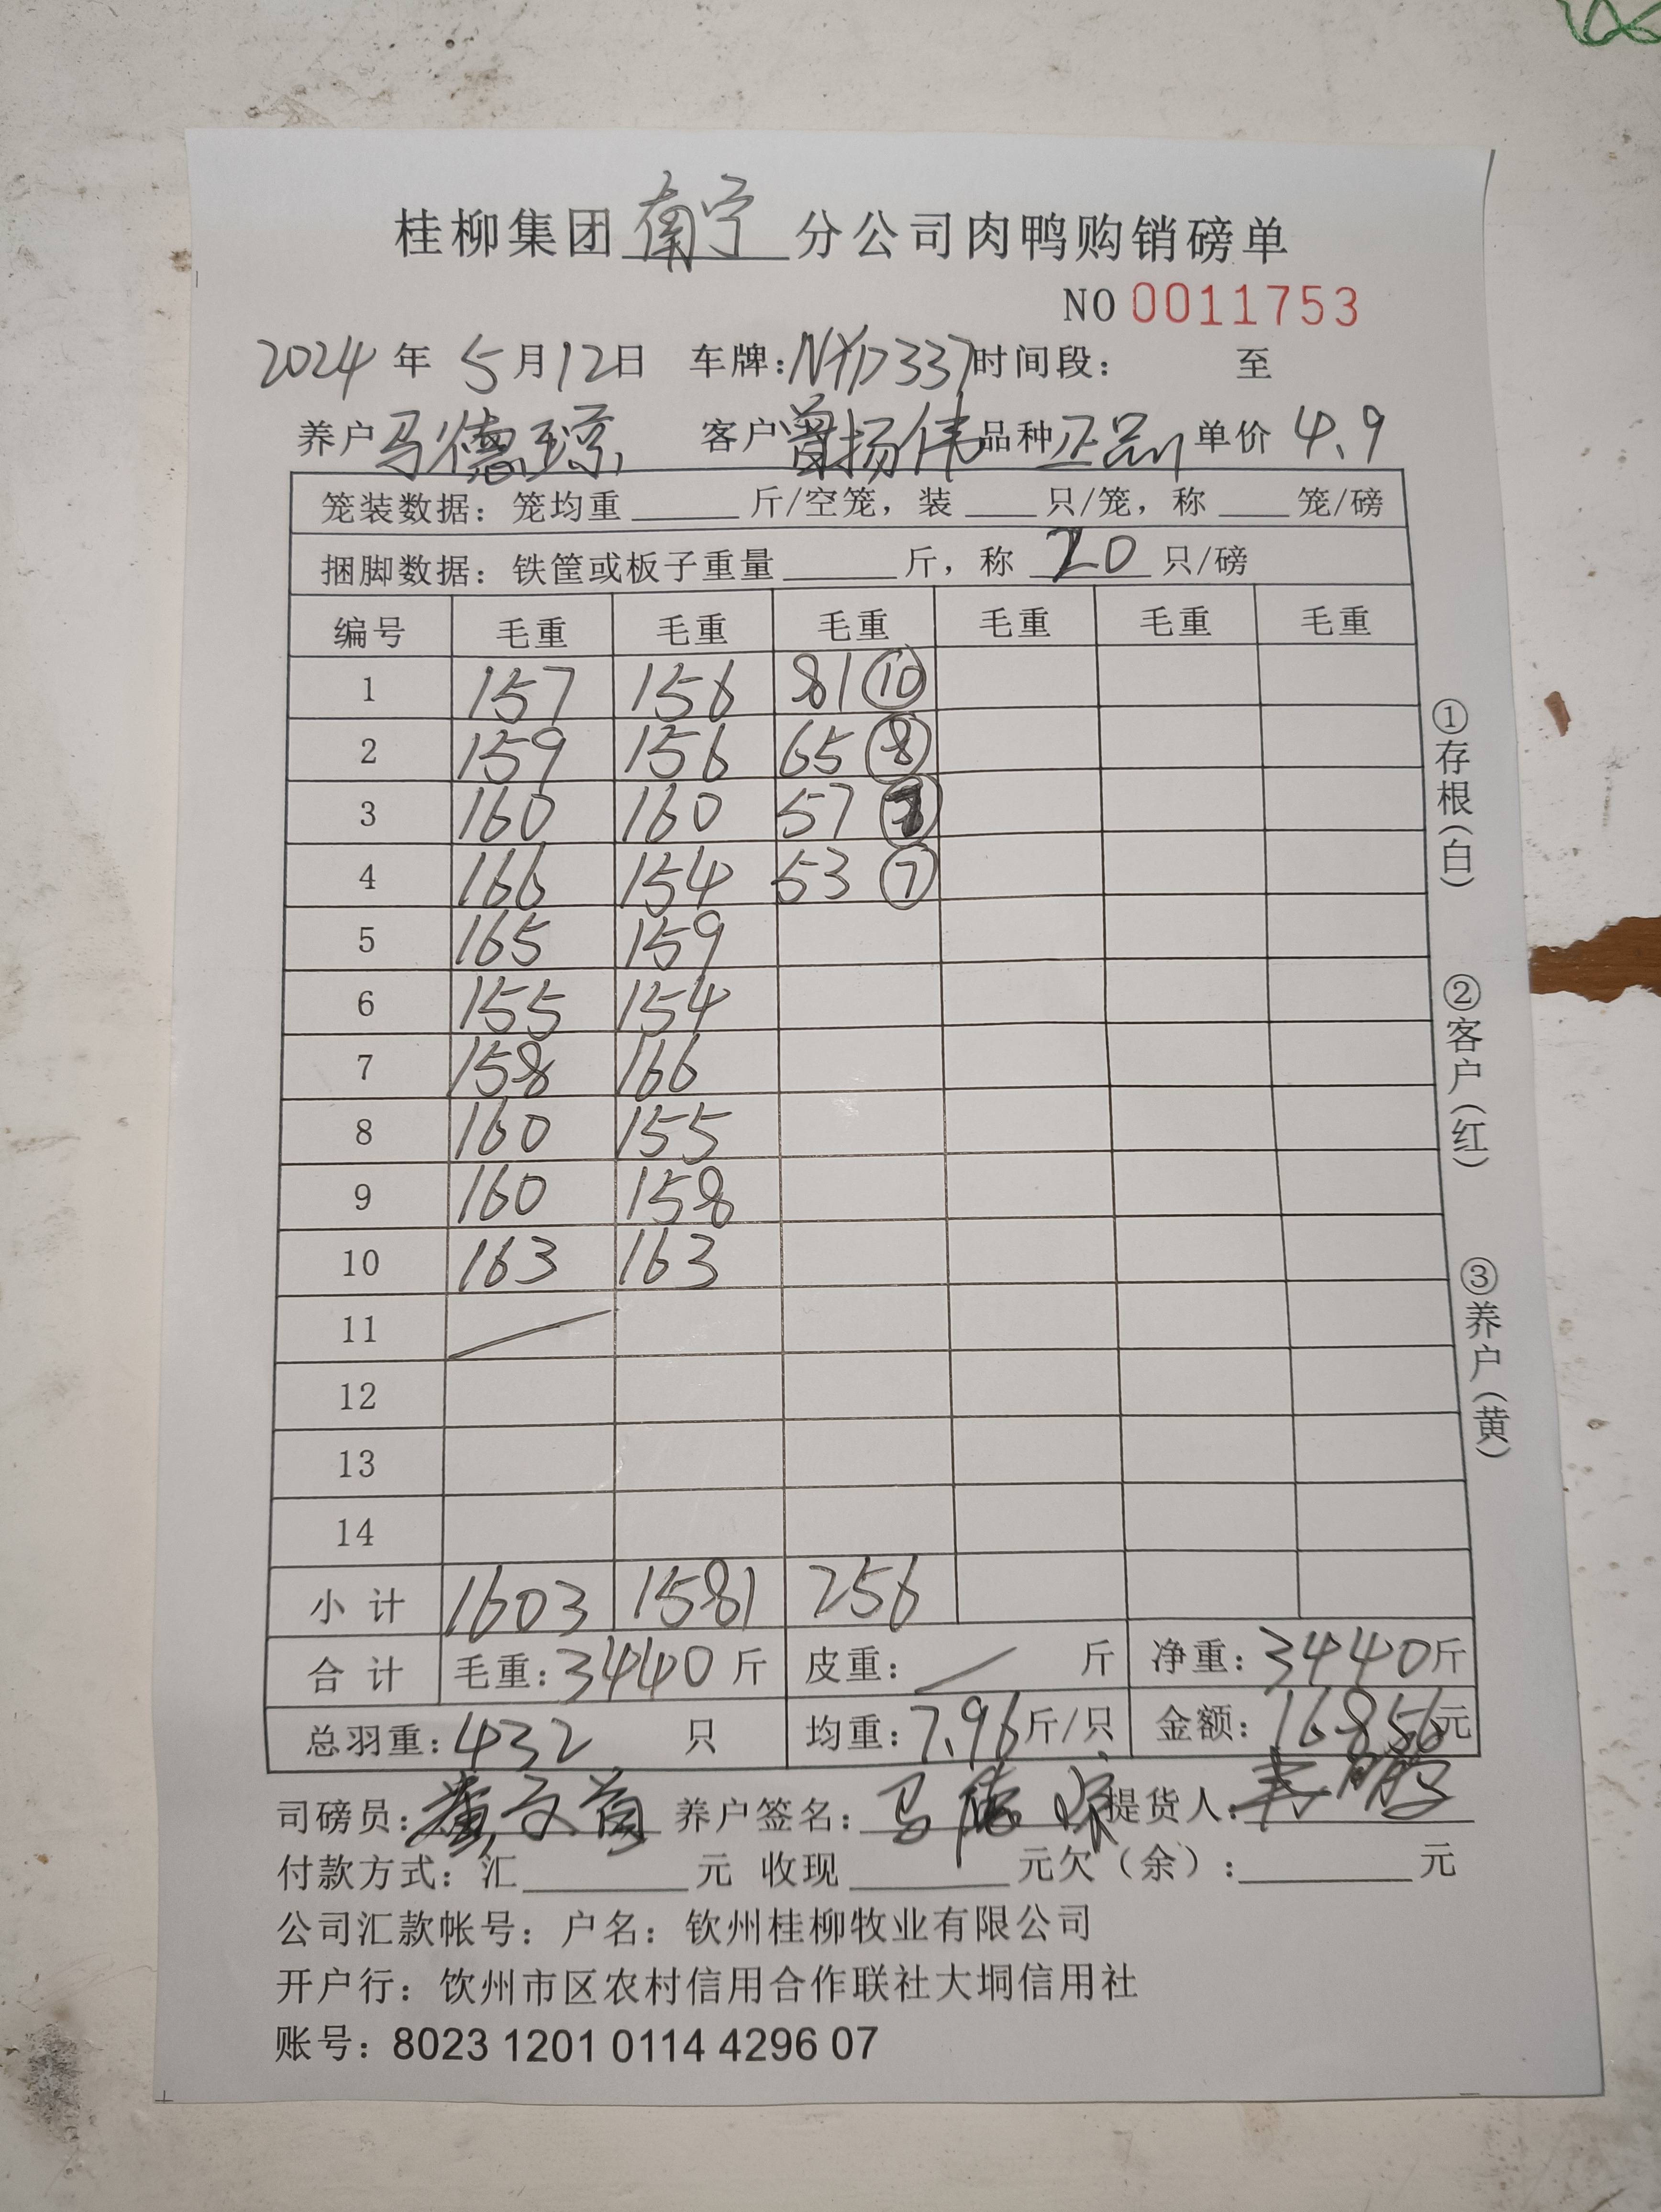 桂柳集团南宁分公司肉鸭购销磅单
NO 0011753
2024年5月12日 车牌:NYD337时间段: 至
养户马德琼 客户曾扬伟品种正品 单价4.9
笼装数据: 笼均重____斤/空笼, 装____只/笼, 称____笼/磅
捆脚数据: 铁筐或板子重量____斤, 称 20 只/磅
编号 毛重 毛重 毛重 毛重 毛重 毛重
1 157 156 81⑩
2 159 156 65⑧
3 160 160 57
4 166 154 53⑦
5 165 159
6 155 154
7 158 166
8 160 155
9 160 158
10 163 163
11
12
13
14
小计 1603 1581 256
合计 毛重:3440斤 皮重: 斤 净重:3440斤
总羽重:432 只 均重:7.96斤/只 金额:16856元
司磅员: 养户签名:马德琼 提货人:
付款方式: 汇____元 收现____元欠(余):____元
公司汇款帐号: 户名: 钦州桂柳牧业有限公司
开户行: 钦州市区农村信用合作联社大垌信用社
账号: 8023 1201 0114 4296 07
①存根(白)
②客户(红)
③养户(黄)